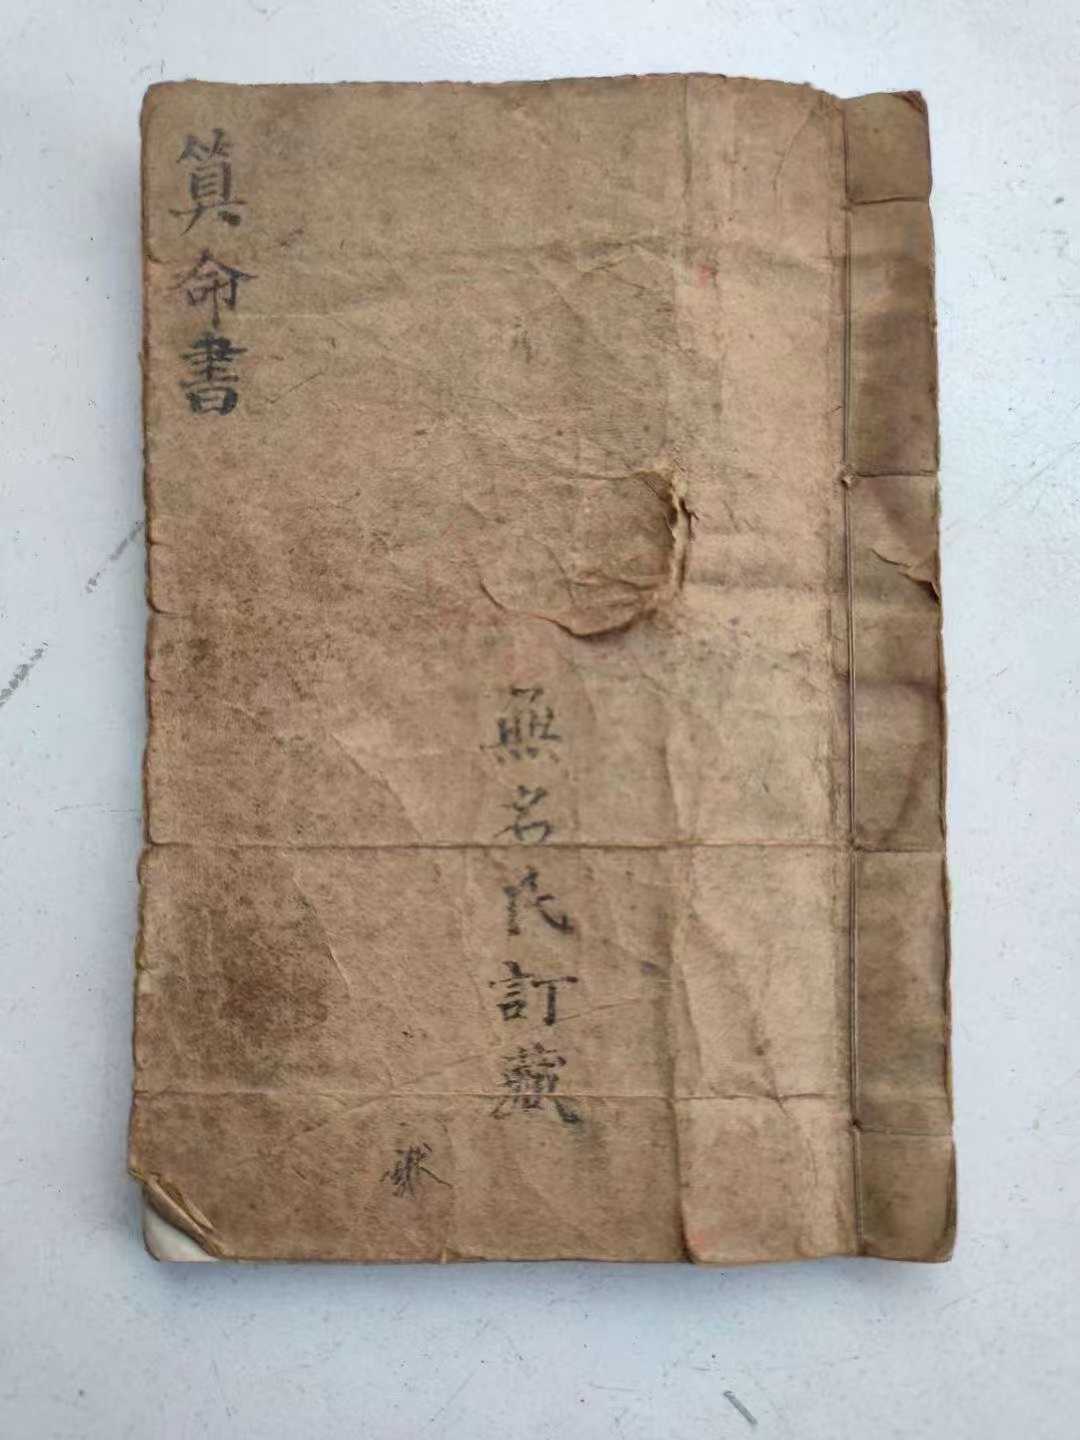 算命書
無名氏訂藏